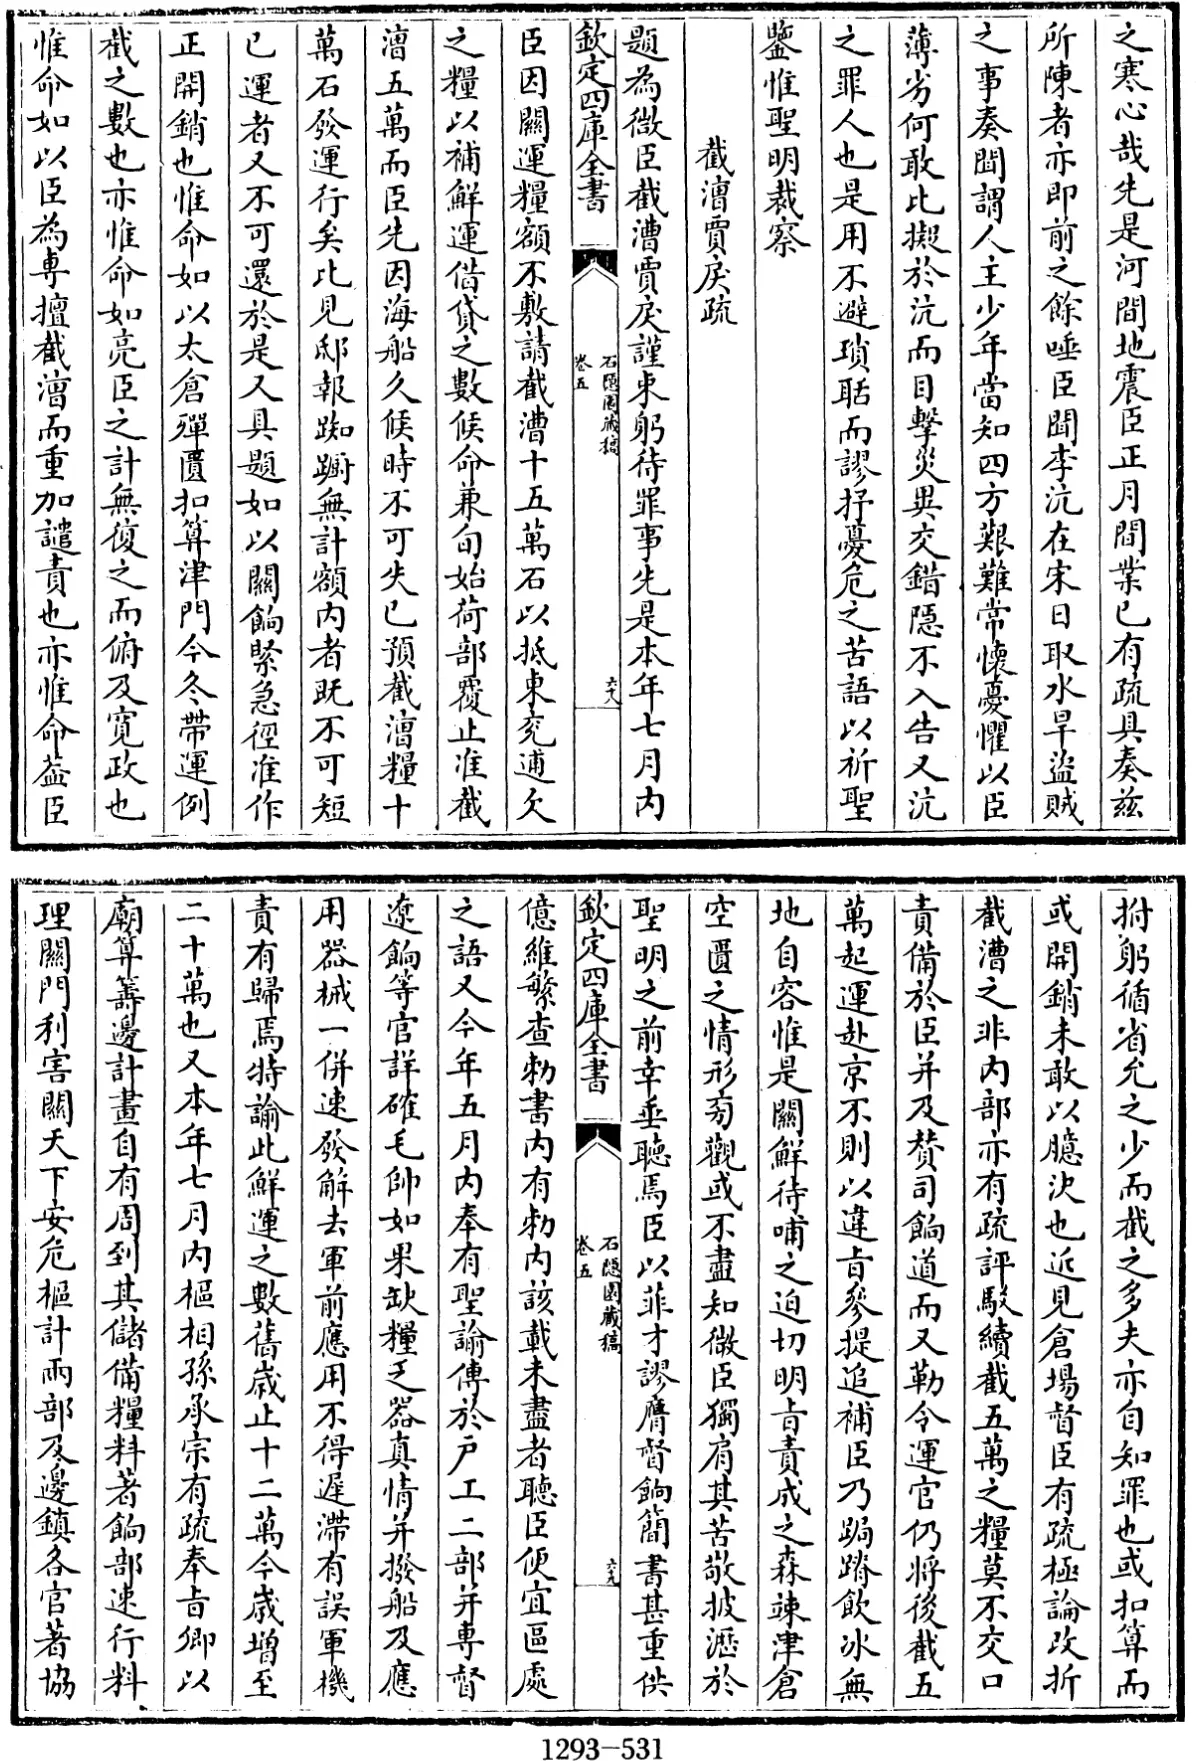 之寒心哉先是河間地震臣正月間業已有疏具奏兹
所陳者亦即前之餘唾臣聞李沆在宋日取水旱盜賊
之事奏聞謂人主少年當知四方艱難常懷憂懼以臣
薄劣何敢比擬於沆而目擊災異交錯隱不入告又沆
之罪人也是用不避瑣聒而謬抒憂危之苦語以祈聖
鑒惟聖明裁察
截漕賈戾疏
題為微臣截漕賈戾謹束躬待罪事先是本年七月内
欽定四庫全書
石隱園藏稿
卷五
六八
臣因關運糧額不敷請截漕十五萬石以抵東兖逋欠
之糧以補鮮運借貸之數候命兼旬始荷部覆止准截
漕五萬而臣先因海船久候時不可失已預截漕糧十
萬石發運行矣比見邸報踟躕無計額内者既不可短
已運者又不可還於是又具題如以關餉緊急徑准作
正開銷也惟命如以太倉殫匱扣算津門今冬帶運例
截之數也亦惟命如亮臣之計無復之而俯及寛政也
惟命如以臣為專擅截漕而重加譴責也亦惟命葢臣
拊躬循省允之少而截之多夫亦自知罪也或扣算而
或開銷未敢以臆決也近見倉場督臣有疏極論改折
截漕之非内部亦有疏評駁續截五萬之糧莫不交口
責備於臣并及贊司餉道而又勒令運官仍將後截五
萬起運赴京不則以違旨參提追補臣乃跼蹐飲冰無
地自容惟是關鮮待哺之迫切明旨責成之森竦津倉
空匱之情形旁觀或不盡知微臣獨肩其苦敬披瀝於
聖明之前幸垂聽焉臣以菲才謬膺督餉簡書甚重供
欽定四庫全書
石隱園藏稿
卷五
六九
億維繁查勑書内有勑内該載未盡者聽臣便宜區處
之語又今年五月内奉有聖諭傳於户工二部并專督
遼餉等官詳確毛帥如果缺糧乏器真情并撥船及應
用器械一併速發解去軍前應用不得遲滯有誤軍機
責有歸焉特諭此鮮運之數舊歲止十二萬今歲增至
二十萬也又本年七月内樞相孫承宗有疏奉旨卿以
廟算籌邊計畫自有周到其儲備糧料著餉部速行料
理關門利害關天下安危樞計兩部及邊鎮各官著協
1293—531